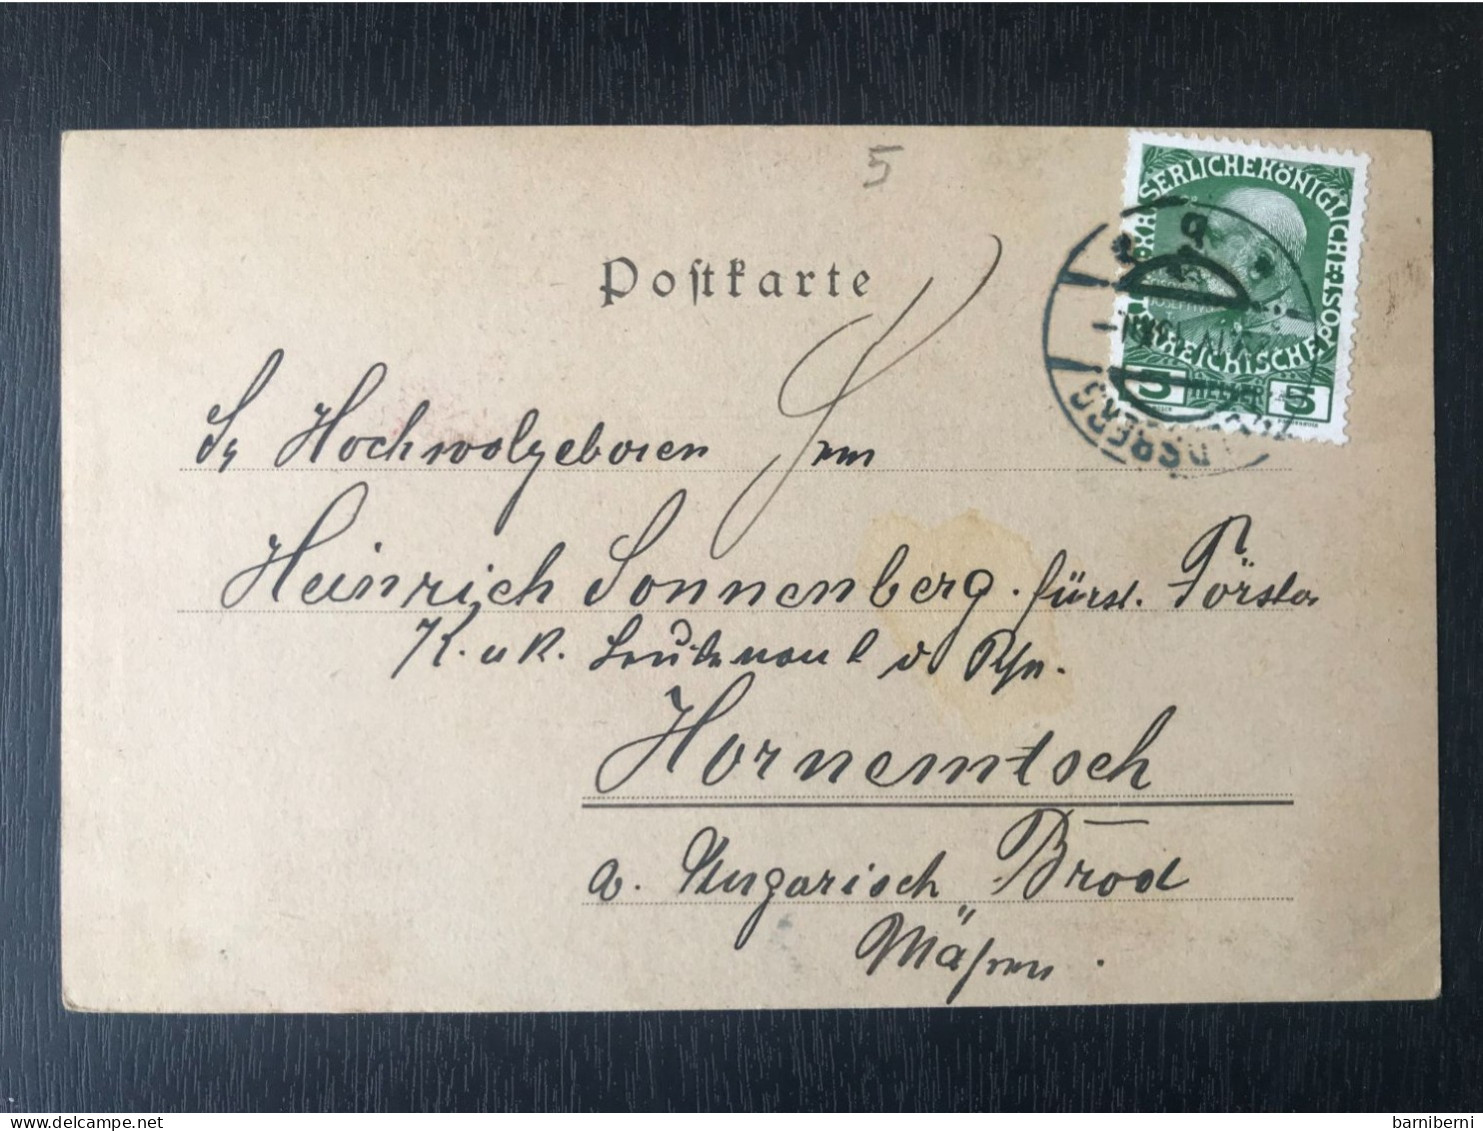 5
Postkarte
KAISERLICHE KÖNIGLICHE ÖSTERREICHISCHE POST
5 HELLER 5
Sr Hochwolgeboren Herrn
Heinrich Sonnenberg. fürst. Förster
K. u K. Leutenant d Rse.
Hornemtsch
a. Ungarisch Brod
Mähren.
barniberni